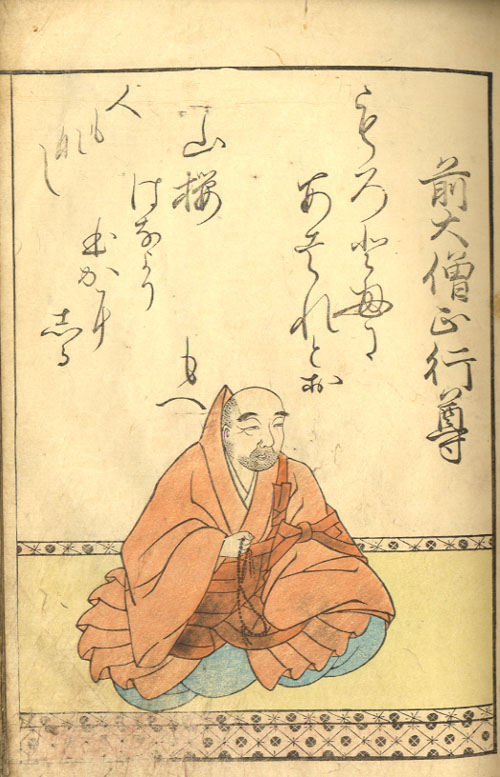 前大僧正行尊
もろともに
あはれとお
もへ
山桜
はなより
ほかに
志る
人
もなし